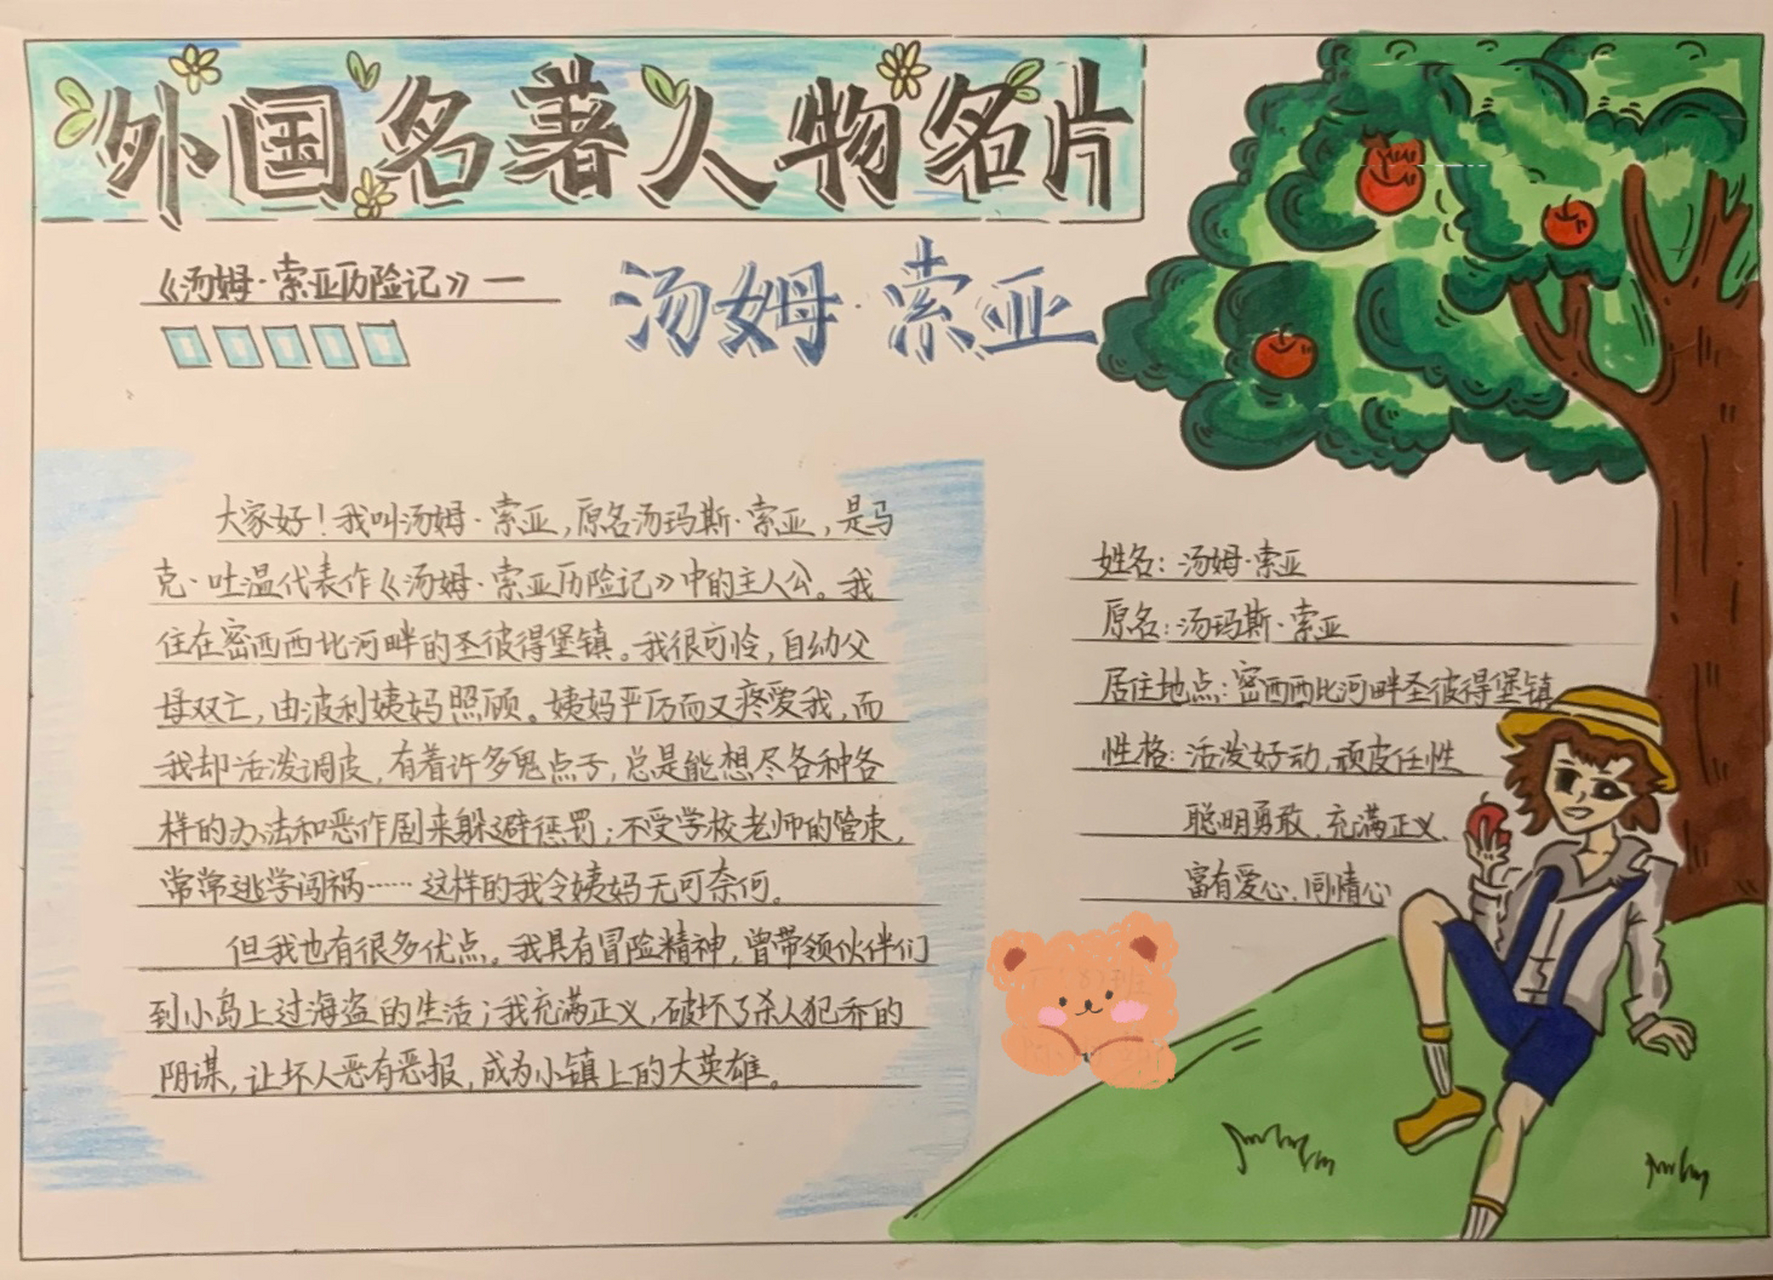 外国名著人物名片
《汤姆·索亚历险记》一
汤姆·索亚
大家好！我叫汤姆·索亚，原名汤玛斯·索亚，是马
克·吐温代表作《汤姆·索亚历险记》中的主人公。我
住在密西西比河畔的圣彼得堡镇。我很可怜，自幼父
母双亡，由波利姨妈照顾。姨妈严厉而又疼爱我，而
我却活泼调皮，有着许多鬼点子，总是能想尽各种各
样的办法和恶作剧来躲避惩罚；不受学校老师的管束，
常常逃学闯祸……这样的我令姨妈无可奈何。
但我也有很多优点。我具有冒险精神，曾带领伙伴们
到小岛上过海盗的生活；我充满正义，破坏了杀人犯乔的
阴谋，让坏人恶有恶报，成为小镇上的大英雄。
姓名：汤姆·索亚
原名：汤玛斯·索亚
居住地点：密西西比河畔圣彼得堡镇
性格：活泼好动，顽皮任性
聪明勇敢，充满正义、
富有爱心、同情心